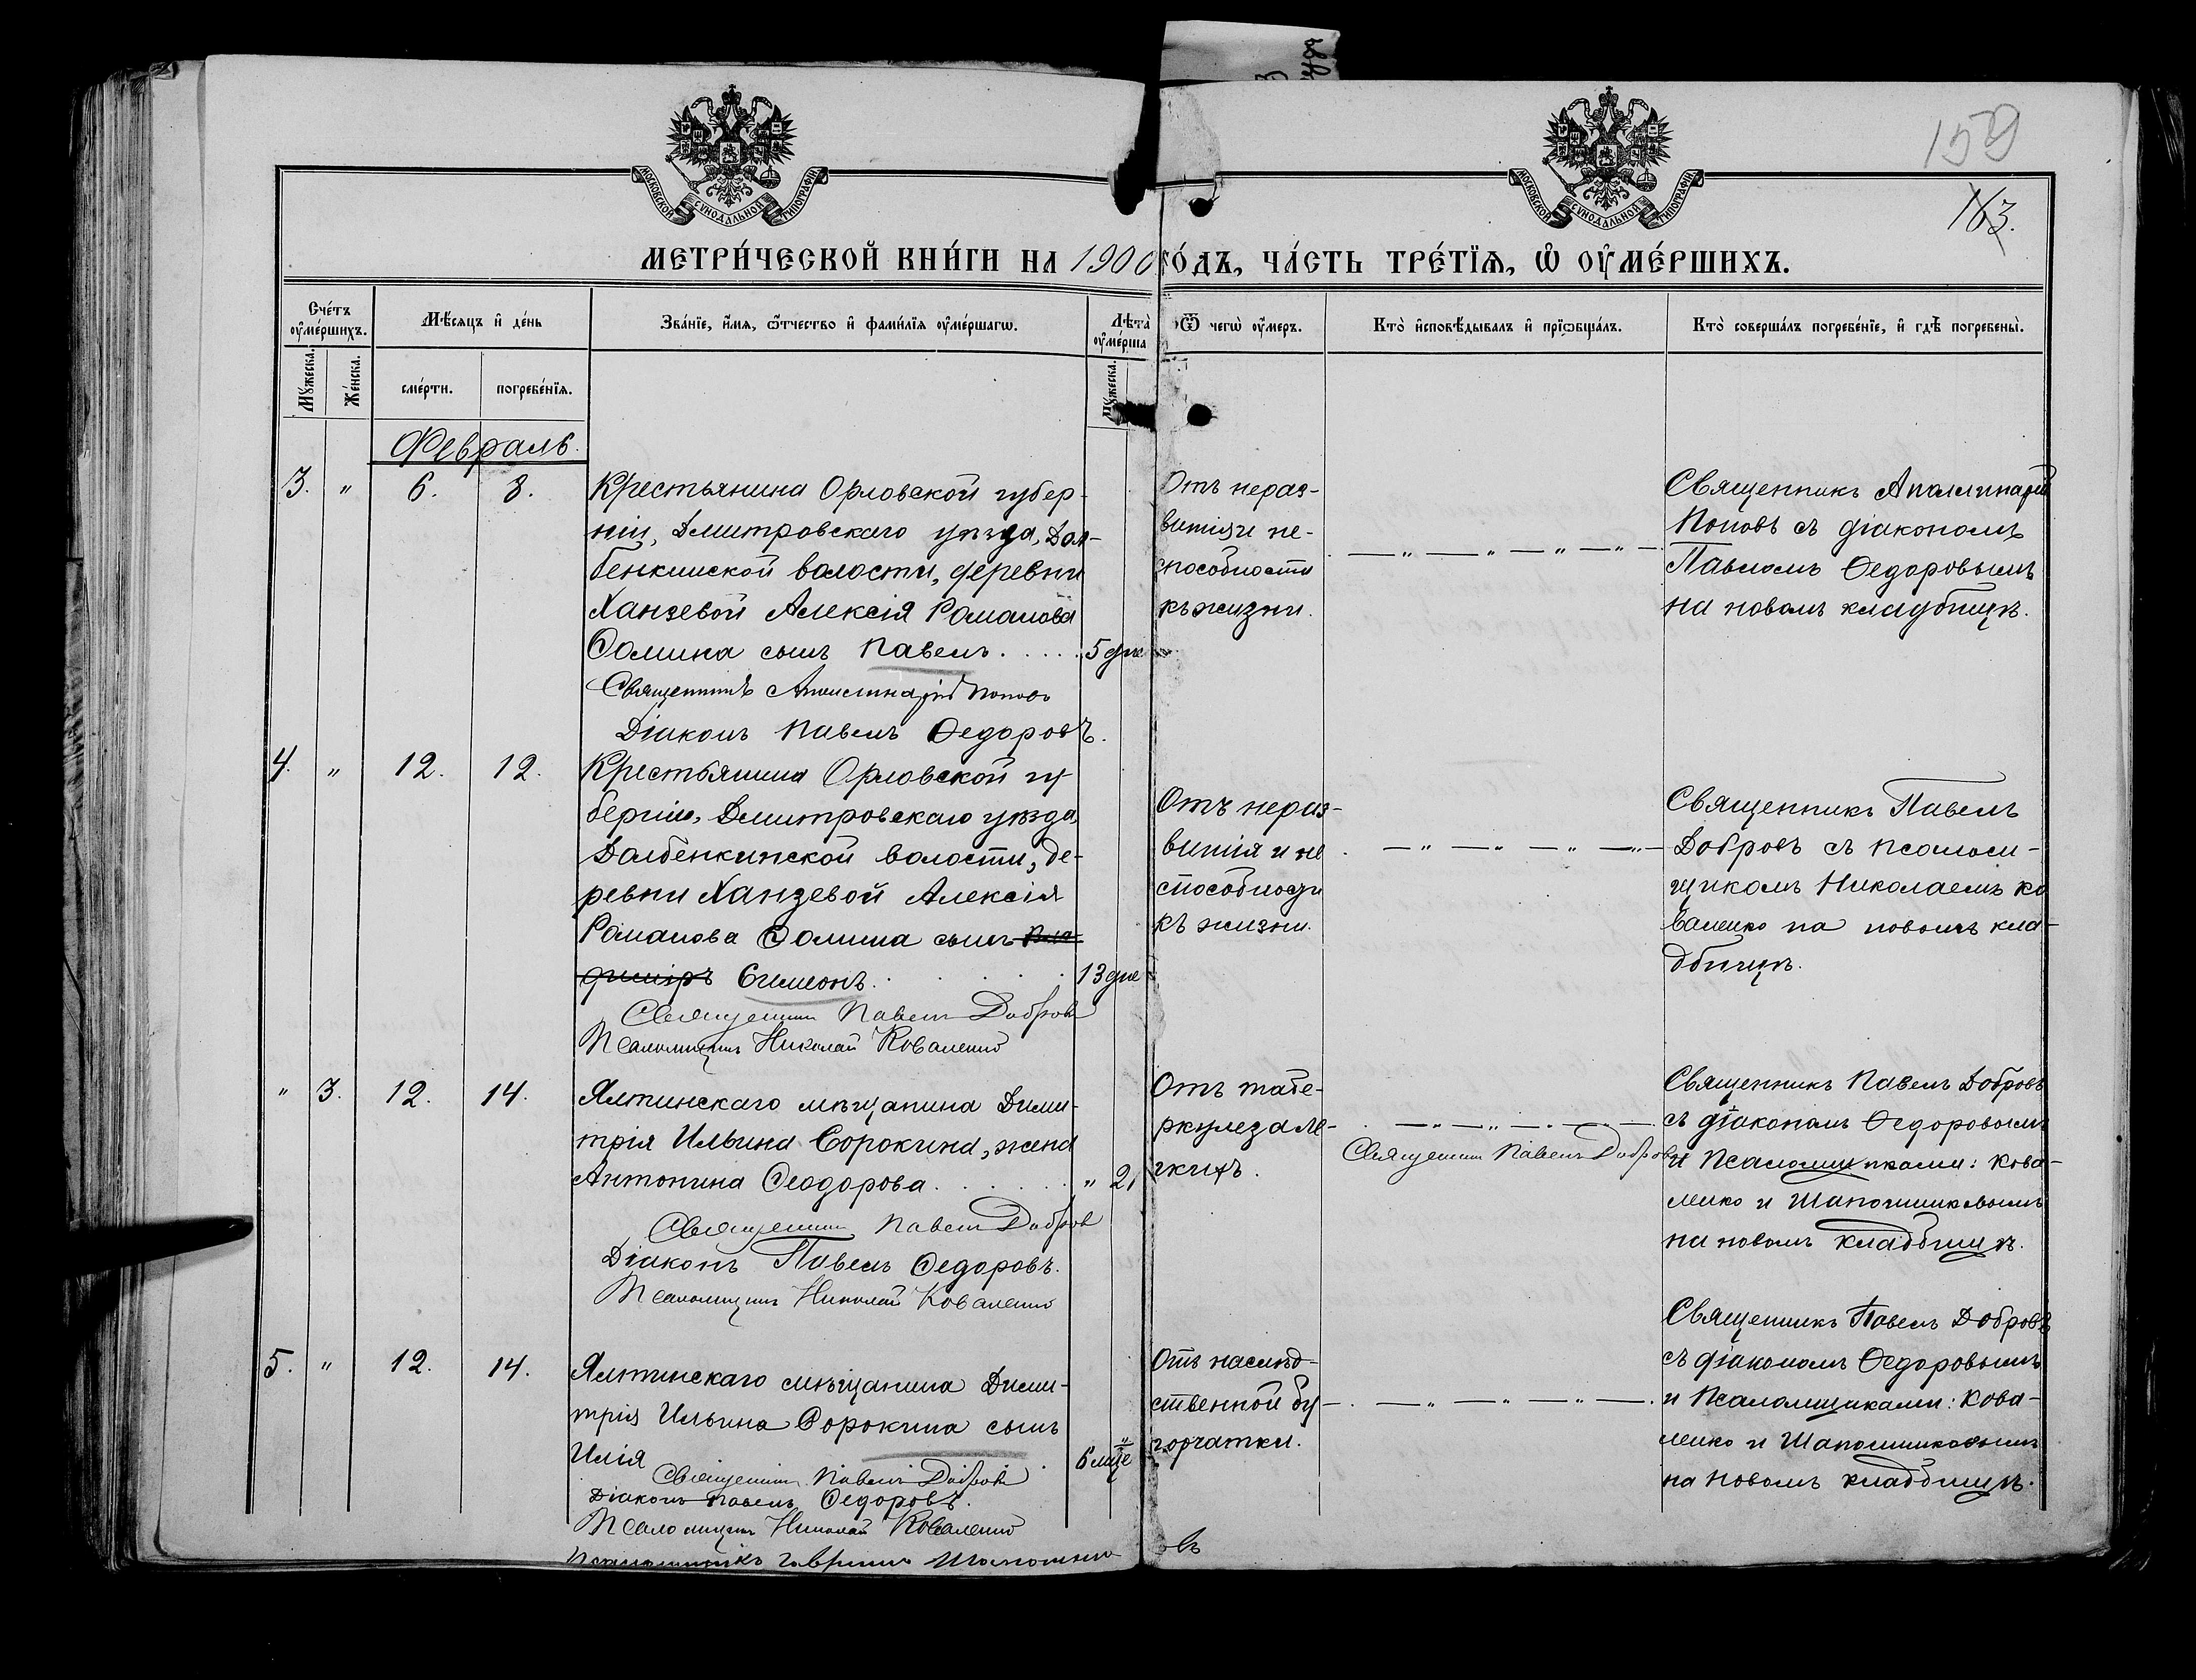 159
163.
МОСКОВСКОЙ СѴНОДАЛЬНОЙ ТИПОГРАФІИ
МОСКОВСКОЙ СѴНОДАЛЬНОЙ ТИПОГРАФІИ
МЕТРИ́ЧЕСКОЙ КНИ́ГИ НА 1900 ГО́ДЪ, ЧА́СТЬ ТРЕ́ТЇѦ, Ѡ҆ ОУ҆МЕ́РШИХЪ.
Счéтъ оу҆мéршихъ.
Мѣ́сяцъ и҆ дéнь
Звáнїе, и҆́мя, ѻ҆́тчество и҆ фами́лїя оу҆мéршагѡ.
Лѣ́та оу҆мéрша
Ѿ чегѡ̀ оу҆́меръ.
Кто̀ и҆сповѣ́дывалъ и҆ прїѡбщáлъ.
Кто̀ совершáлъ погребéнїе, и҆ гдѣ̀ погребены̀.
Мꙋ́жеска.
Жéнска.
смéрти.
погребéнїя.
Мꙋ́жеска.
Февраль.
3. " 6. 8.
Крестьянина Орловской губер-
ніи, Дмитровскаго уѣзда, Дол-
бенкинской волости, деревни
Ханзевой Алексія Романова
Ѳомина сынъ Павелъ. 5 дне
Священникъ Аполлинарій Поповъ
Діаконъ Павелъ Ѳедоровъ.
Отъ нераз-
витія и не-
способности
къ жизни.
Священникъ Аполлинарій
Поповъ съ діакономъ
Павломъ Ѳедоровымъ
на новомъ кладбищѣ.
4. " 12. 12.
Крестьянина Орловской гу
берніи, Дмитровскаго уѣзда,
Долбенкинской волости, де-
ревни Ханзевой Алексія
Романова Ѳомина сынъ Вла
диміръ Симеонъ. 13 дне
Священникъ Павелъ Добровъ
Псаломщикъ Николай Коваленко
Отъ нераз-
витія и не
способности
къ жизни.
Священникъ Павелъ
Добровъ съ псалом-
щикомъ Николаемъ Ко
валенко на новомъ кла-
дбищѣ.
" 3. 12. 14.
Ялтинскаго мѣщанина Дими-
трія Ильина Сорокина, жена
Антонина Ѳеодорова. " 21
Священникъ Павелъ Добровъ
Діаконъ Павелъ Ѳедоровъ.
Псаломщикъ Николай Коваленко
Отъ тубе-
ркулеза ле-
гкихъ.
Священникъ Павелъ Добровъ
Священникъ Павелъ Добровъ
съ діакономъ Ѳедоровымъ
и Псаломщиками: Кова-
ленко и Шапошниковымъ
на новомъ кладбищѣ.
5. " 12. 14.
Ялтинскаго мѣщанина Дими-
трія Ильина Сорокина сынъ
Илія 6 мѣце "
Священникъ Павелъ Добровъ
Діаконъ Павелъ Ѳедоровъ.
Псаломщикъ Николай Коваленко
Псаломщикъ Гавріилъ Шапошниковъ
Отъ наслѣд-
ственной бу-
горчатки.
Священникъ Павелъ Добровъ
съ діакономъ Ѳедоровымъ
и Псаломщиками: Кова-
ленко и Шапошниковымъ
на новомъ кладбищѣ.